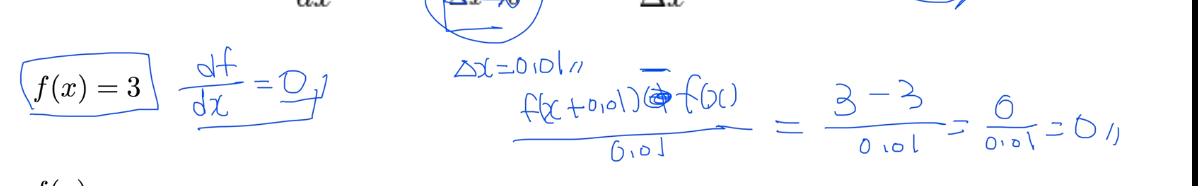 Δx
f(x) = 3 df/dx = 0,, Δx=0,01,,
(f(x+0,01) - f(x))/0,01 = (3-3)/0,01 = 0/0,01 = 0,,